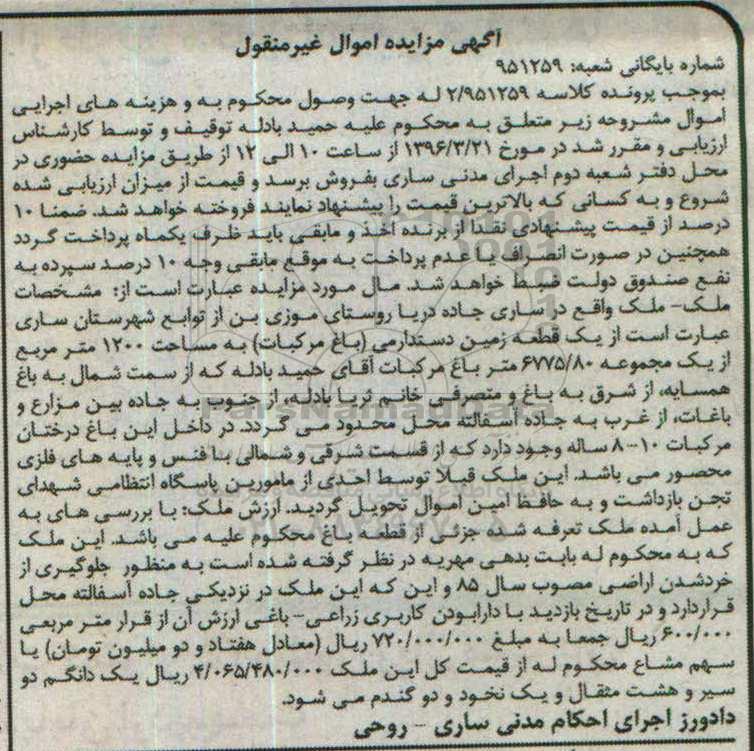 آگهی مزایده اموال غیرمنقول
شماره بایگانی شعبه: ۹۵۱۲۵۹
بموجب پرونده کلاسه ۲/۹۵۱۲۵۹ له جهت وصول محکوم به و هزینه های اجرایی
اموال مشروحه زیر متعلق به محکوم علیه حمید بادله توقیف و توسط کارشناس
ارزیابی و مقرر شد در مورخ ۱۳۹۶/۳/۲۱ از ساعت ۱۰ الی ۱۲ از طریق مزایده حضوری در
محل دفتر شعبه دوم اجرای مدنی ساری بفروش برسد و قیمت از میزان ارزیابی شده
شروع و به کسانی که بالاترین قیمت را پیشنهاد نمایند فروخته خواهد شد. ضمنا ۱۰
درصد از قیمت پیشنهادی نقدا از برنده اخذ و مابقی باید ظرف یکماه پرداخت گردد
همچنین در صورت انصراف یا عدم پرداخت به موقع مابقی وجه ۱۰ درصد سپرده به
نفع صندوق دولت ضبط خواهد شد. مال مورد مزایده عبارت است از: مشخصات
ملک- ملک واقع در ساری جاده دریا روستای موزی بن از توابع شهرستان ساری
عبارت است از یک قطعه زمین دستدارمی (باغ مرکبات) به مساحت ۱۲۰۰ متر مربع
از یک مجموعه ۶۷۷۵/۸۰ متر باغ مرکبات آقای حمید بادله که از سمت شمال به باغ
همسایه، از شرق به باغ و متصرفی خانم ثریا بادله، از جنوب به جاده بین مزارع و
باغات، از غرب به جاده آسفالته محل محدود می گردد. در داخل این باغ درختان
مرکبات ۱۰-۸ ساله وجود دارد که از قسمت شرقی و شمالی با فنس و پایه های فلزی
محصور می باشد. این ملک قبلا توسط احدی از مامورین پاسگاه انتظامی شهدای
تجن بازداشت و به حافظ امین اموال تحویل گردید. ارزش ملک: با بررسی های به
عمل آمده ملک تعرفه شده جزئی از قطعه باغ محکوم علیه می باشد. این ملک
که به محکوم له بابت بدهی مهریه در نظر گرفته شده است به منظور جلوگیری از
خردشدن اراضی مصوب سال ۸۵ و این که این ملک در نزدیکی جاده آسفالته محل
قراردارد و در تاریخ بازدید با دارابودن کاربری زراعی- باغی ارزش آن از قرار متر مربعی
۶۰۰/۰۰۰ ریال جمعا به مبلغ ۷۲۰/۰۰۰/۰۰۰ ریال (معادل هفتاد و دو میلیون تومان) یا
سهم مشاع محکوم له از قیمت کل این ملک ۴/۰۶۵/۴۸۰/۰۰۰ ریال یک دانگم دو
سیر و هشت مثقال و یک نخود و دو گندم می شود.
دادورز اجرای احکام مدنی ساری - روحی
ParsNamadData